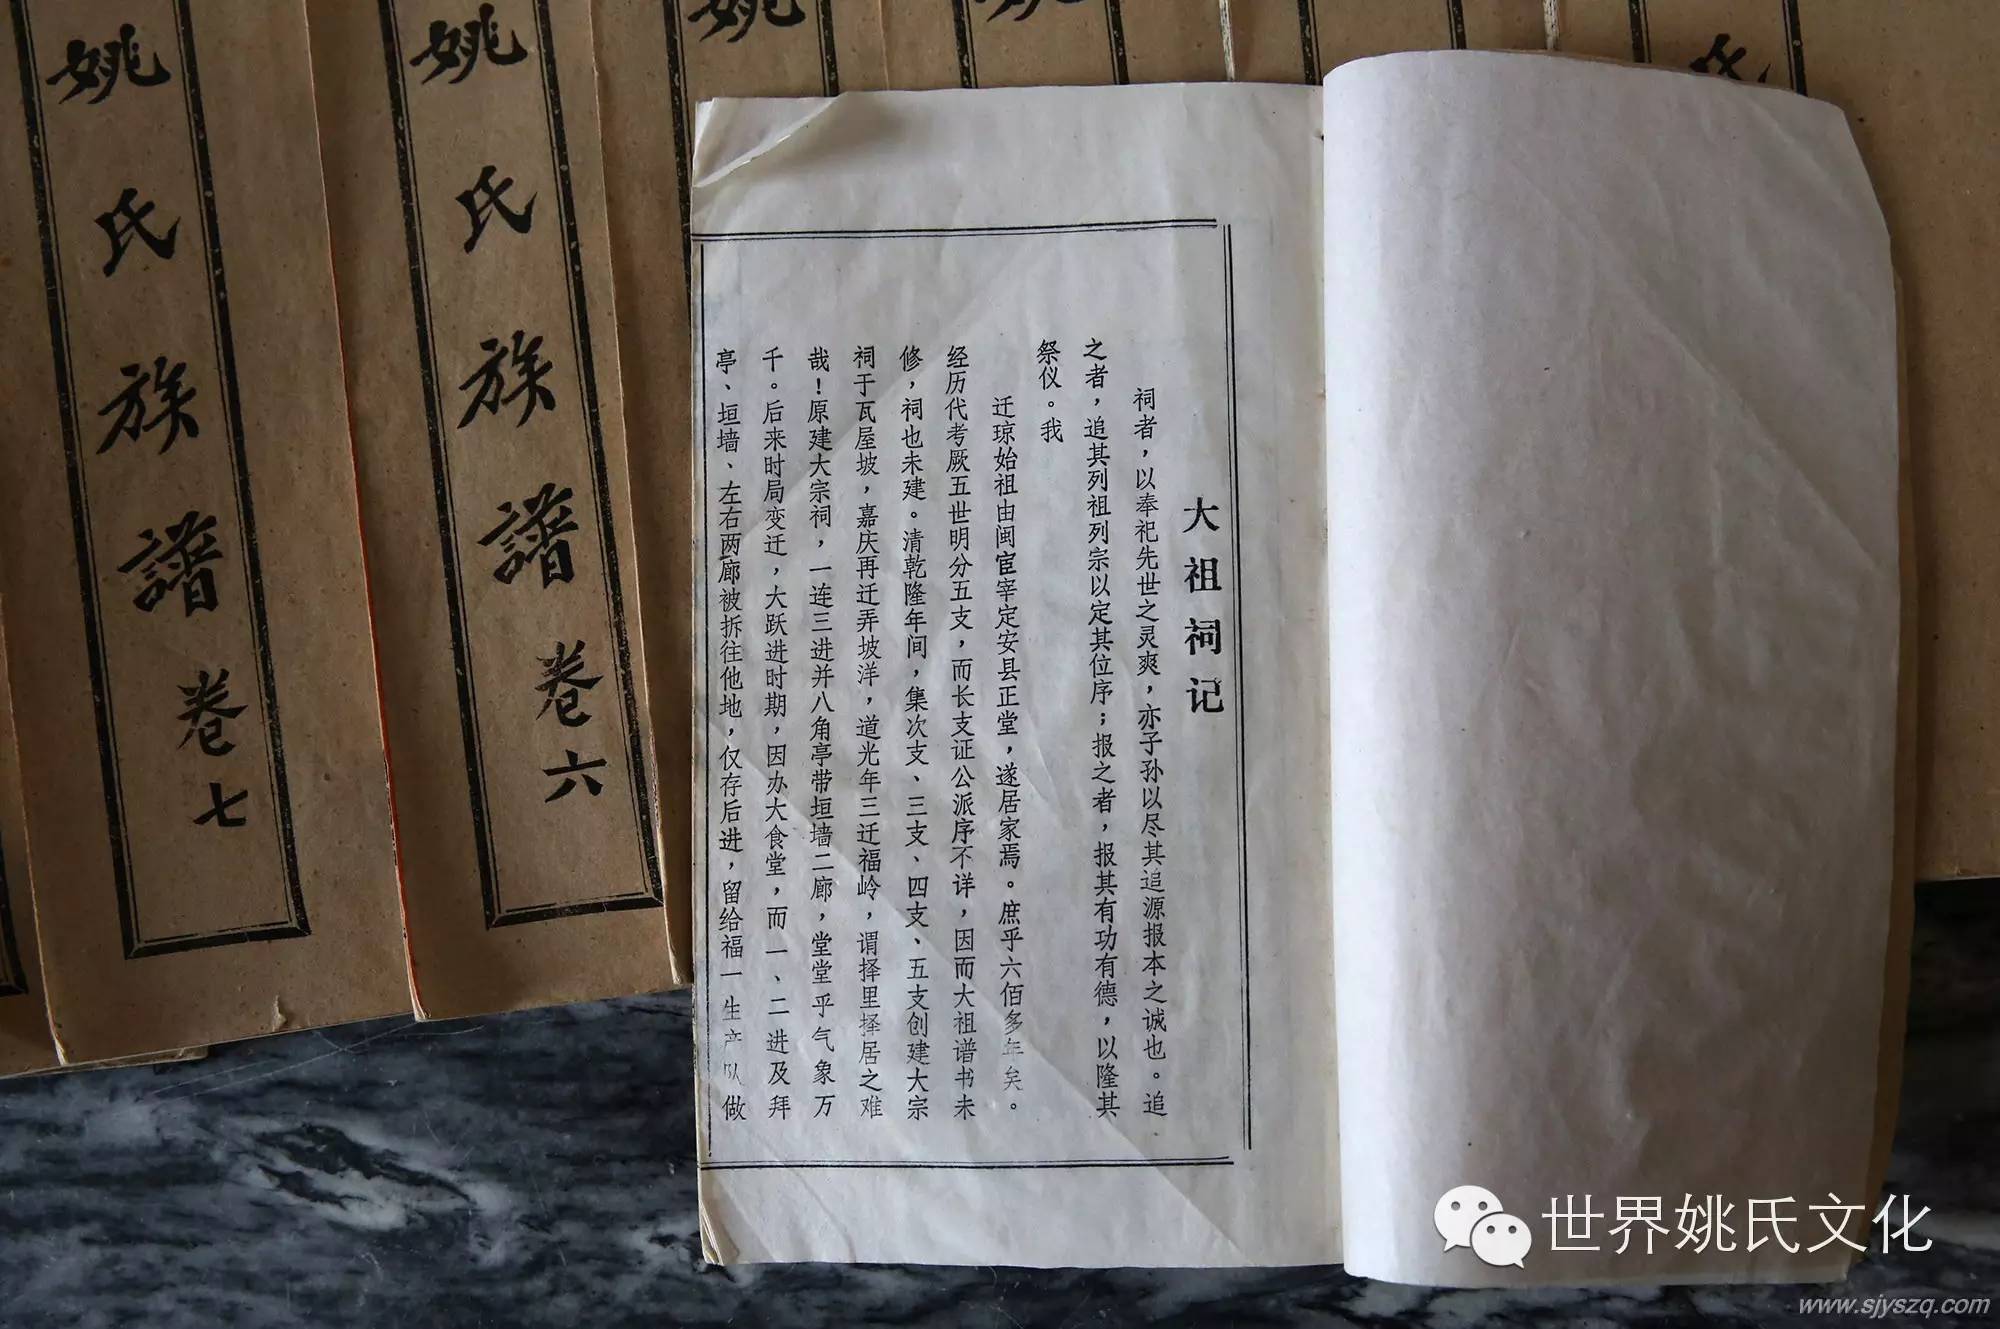 大祖祠记
祠者，以奉祀先世之灵爽，亦子孙以尽其追源报本之诚也。追
之者，追其列祖列宗以定其位序；报之者，报其有功有德，以隆其
祭仪。我
迁琼始祖由闽宦宰定安县正堂，遂居家焉。庶乎六佰多年矣。
经历代考厥五世明分五支，而长支证公派序不详，因而大祖谱书未
修，祠也未建。清乾隆年间，集次支、三支、四支、五支创建大宗
祠于瓦屋坡，嘉庆再迁弄坡洋，道光年三迁福岭，谓择里择居之难
哉！原建大宗祠，一连三进并八角亭带垣墙二廊，堂堂乎气象万
千。后来时局变迁，大跃进时期，因办大食堂，而一、二进及拜
亭、垣墙、左右两廊被拆往他地，仅存后进，留给福一生产队做
姚氏族譜卷六
姚氏族譜卷七
姚
姚
氏
世界姚氏文化
www.sjyszq.com